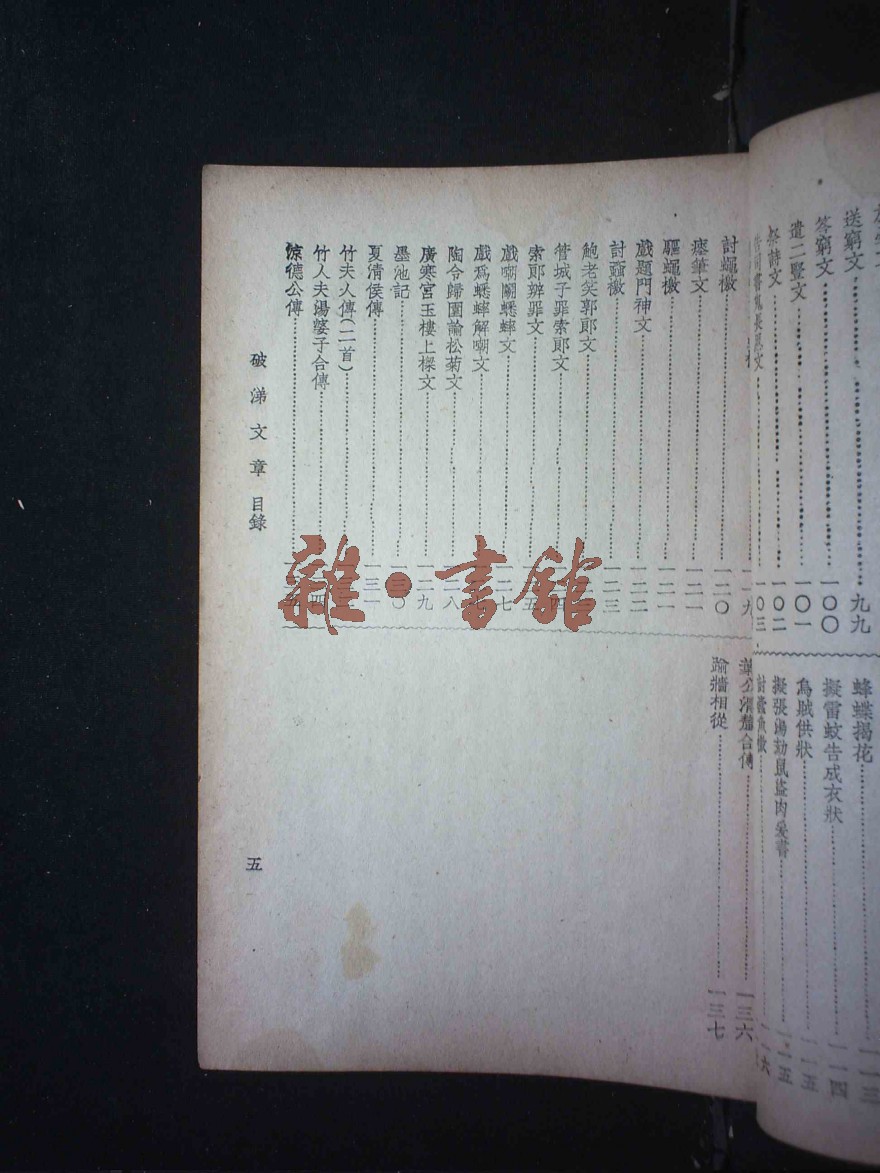 送窮文……九九
答窮文……一〇〇
遣二豎文……一〇一
祭詩文……一〇二
一〇三
蜂蝶揭花……一一三
擬雷蚊告成衣狀……一一四
烏賊供狀……一一五
擬張湯劾鼠盜肉爰書……一一五
討蠹魚檄……一一六
一一九
討蠅檄……一二〇
瘞筆文……一二一
驅蠅檄……一二一
戲題門神文……一二二
討蝨檄……一二三
鮑老笑郭郎文
管城子罪索郎文
索郎辨罪文
戲嘲鬭蟋蟀文……一二七
戲爲蟋蟀解嘲文
陶令歸園諭松菊文……一二八
廣寒宮玉樓上樑文……一二九
墨池記……一三〇
夏清侯傳……一三一
竹夫人傳（二首）
竹人夫湯婆子合傳
涼德公傳
合傳……一三六
踰牆相從……一三七
破涕文章 目錄
五
雜·書館